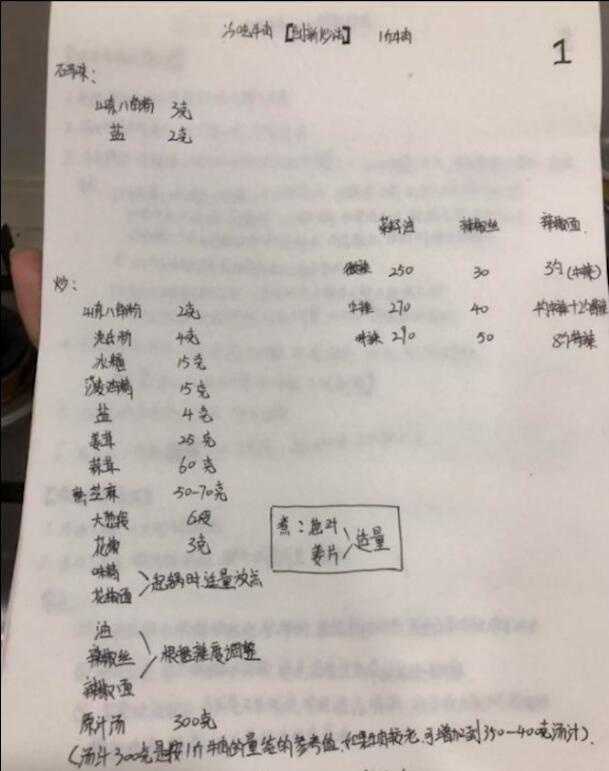 冷吃牛肉【创新炒法】 1斤牛肉
1
码味：
山東八角粉 3克
盐 2克
菜籽油 辣椒丝 辣椒面
微辣 250 30 3勺(中辣)
炒：
山東八角粉 2克
中辣 270 40
4克
特辣 290 50 8勺特辣
冰糖 15克
菠鸡精 15克
盐 4克
姜茸 25克
蒜茸 60克
熟芝麻 50-70克
大葱段 6段
煮：葱叶
姜片 适量
花椒 3克
味精
花椒面 起锅时适量放点
油
辣椒丝 根据辣度调整
辣椒面
原汁汤 300克
(汤汁300克是按1斤牛肉的量算的参考值,如果牛肉较老,可增加到350-400克汤汁).